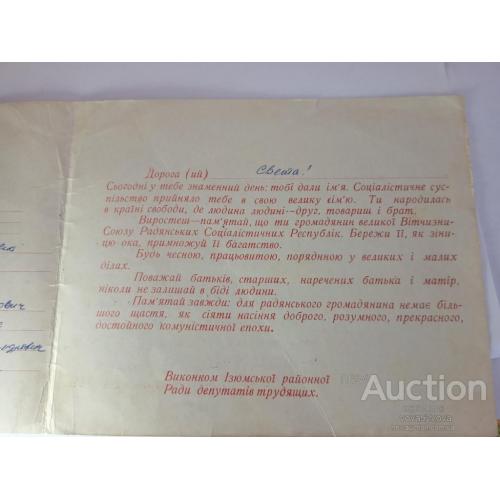 Дорога (ий) Света!
Сьогодні у тебе знаменний день: тобі дали ім'я. Соціалістичне сус-
пільство прийняло тебе в свою велику сім'ю. Ти народилась
в країні свободи, де людина людині—друг, товариш і брат.
Виростеш—пам'ятай, що ти громадянин великої Вітчизни—
Союзу Радянських Соціалістичних Республік. Бережи її, як зіни-
цю ока, примножуй її багатство.
Будь чесною, працьовитою, порядною у великих і малих
ділах.
Поважай батьків, старших, наречених батька і матір,
ніколи не залишай в біді людини.
Пам'ятай завжди: для радянського громадянина немає біль-
шого щастя, як сіяти насіння доброго, розумного, прекрасного,
достойного комуністичної епохи.
Виконком Ізюмської районної
Ради депутатів трудящих.
Auction